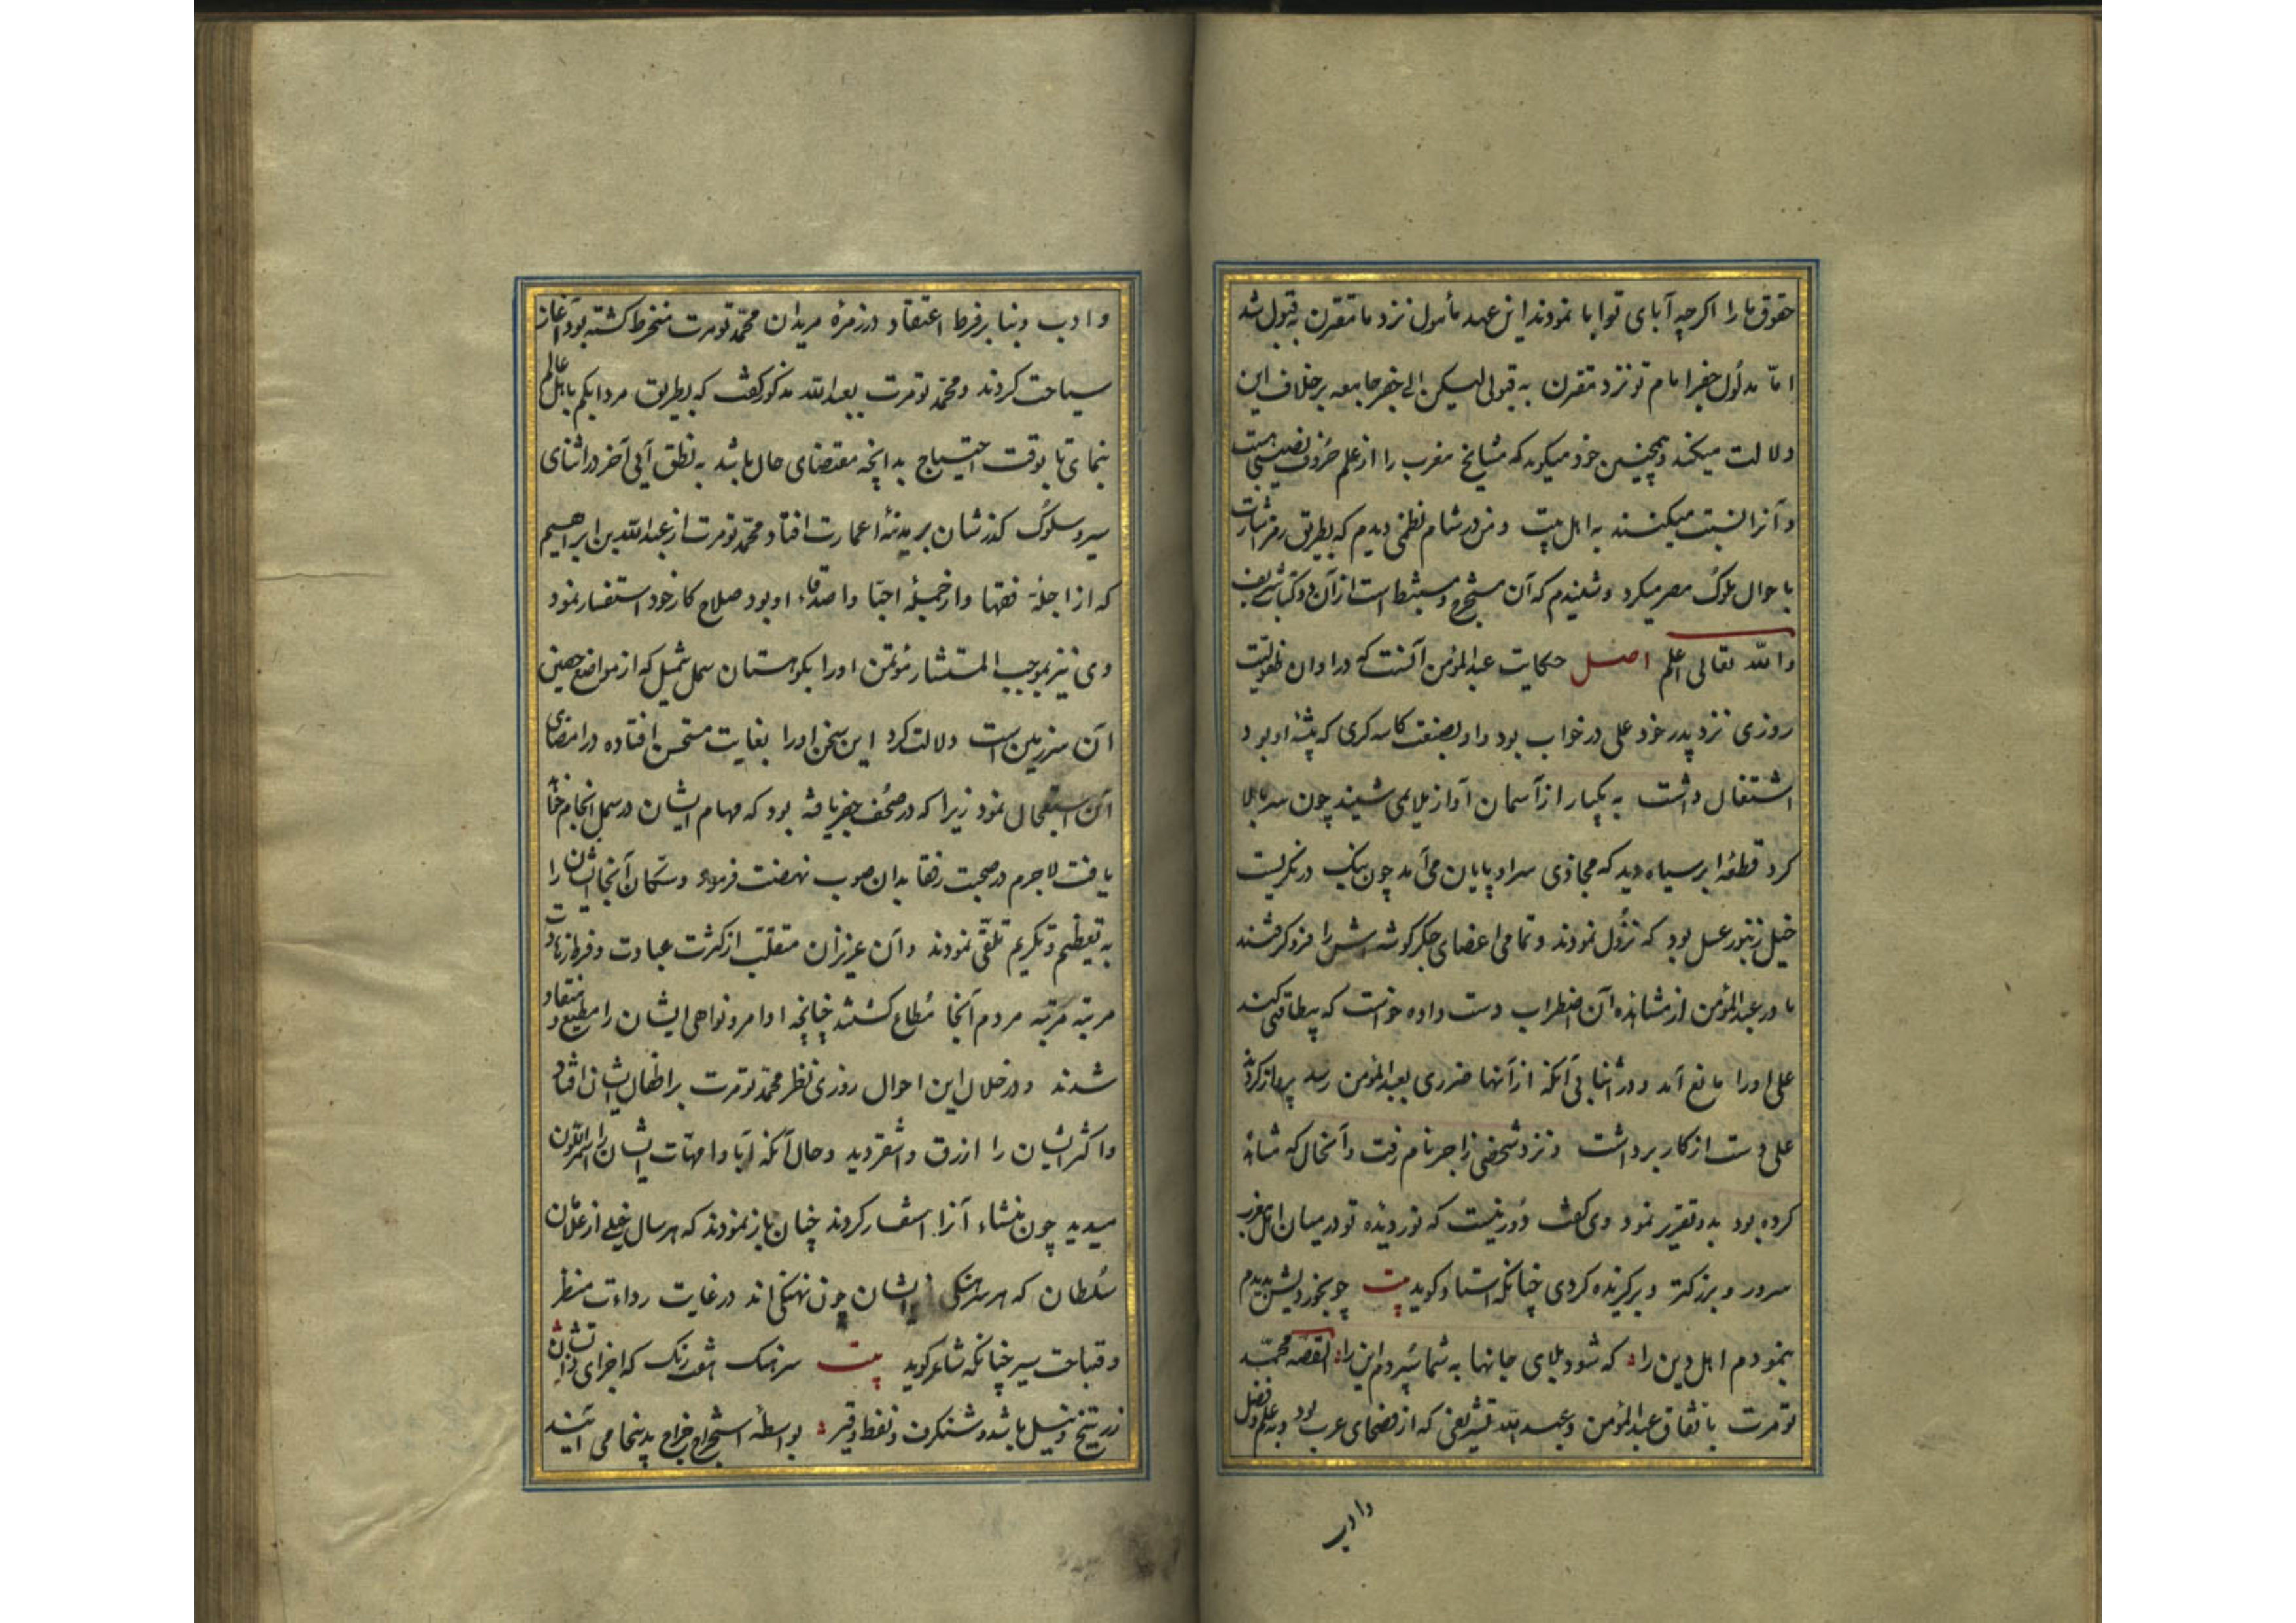 حقوق ما را اکرچه آبای تو ابا نمودند این عهد مأمول نزد ما مقرن به قبول شد
اما مدلول جفر امام تو نزد مقرن به قبولی لیکن الی جفر جامعه بر خلاف این
دلالت میکند و همچنین خود میکوید که مشایخ مغرب را از علم حروف نصیبی هست
و آنرا نسبت میکنند به اهل بیت و من در شام نظمی دیدم که بطریق رمز اشارت
باحوال ملوک مصر میکرد و شنیدم که آن مستخرج و مستنبط است از آن دو کتاب شریف
والله تعالی اعلم اصل حکایت عبدالمؤمن آنست که در اوان طفولیت
روزی نزد پدر خود علی در خواب بود و او بصنعت کاسه کری که پیشه او بود
اشتغال داشت به یکبار از آسمان آواز ملایمی شنید چون سر بالا
کرد قطعه ابر سیاه دید که محاذی سر او پایان می آمد چون نیک در نکریست
خیل زنبور عسل بود که نزول نمودند و تمامی اعضای جکر کوشه اش را فرو کرفتند
مادر عبدالمؤمن از مشاهده آن اضطراب دست داده خواست که بیطاقتی کند
علی اورا مانع آمد و در اثنا بی آنکه از آنها ضرری بعبدالمؤمن رسد پرواز کردند
علی دست از کار برداشت و نزد شخصی زاجر نام رفت و آنحال که مشاهده
کرده بود بدو تقریر نمود وی کفت دور نیست که نور دیده تو در میان اهل مغرب
سرور و بزرکتر و برکزیده کردی چنانکه استاد کوید بیت چو بخوردیش بدیدم
بنمودم اهل دین را که شود بلای جانها به شما سپردم این را القصه محمد
تومرت باتفاق عبدالمؤمن و عبدالله تشریعی که از فصحای عرب بود و به علم و فضل
وادب
وادب و بنا بر فرط اعتقاد در زمرهٔ مریدان محمد تومرت منخرط کشته بود آغاز
سیاحت کردند و محمد تومرت بعبدالله مذکور کفت که بطریق مردابکم باهل عالم
بنمای تا بوقت احتیاج بدانچه مقتضای حال باشد به نطق آیی آخر در اثنای
سیر و سلوک کذرشان بر مدینهٔ اعمارت افتاد محمد تومرت از عبدالله بن ابراهیم
که از اجلهٔ فقها و از جمله احبا و اصدقاء او بود صلاح کار خود استفسار نمود
وی نیز بموجب المستشار مؤتمن اورا بکوهستان سمل تمیل که از مواضع حصین
آن سرزمین است دلالت کرد این سخن اورا بغایت مستحسن افتاده در امضای
آن استعجال نمود زیرا که در صحف جفر یافته بود که مهام ایشان در سمل انجام خواهد
یافت لاجرم در صحبت رفقا بدان صوب نهضت فرمود و سکان آنجا ایشان را
به تعظیم و تکریم تلقی نمودند و آن عزیزان متقلب از کثرت عبادت و فرط زهادت
مرتبه مرتبه مردم آنجا مطاع کشتند چنانچه اوامر و نواهی ایشان را مطیع و منقاد
شدند و در خلال این احوال روزی نظر محمد تومرت بر اطفال ایشان افتاد
و اکثر ایشان را ازرق و اشقر دید و حال آنکه آبا و امهات ایشان را اسمر اللون
میدید چون منشاء آنرا استفسار کردند چنان باز نمودند که هر سال خیلی از غلامان
سلطان که هر سرهنکی از ایشان چون نهنکی اند در غایت رداءت منظر
و قباحت سیر چنانکه شاعر کوید بیت سرهنک اشقر رنک که اجزای ذاتشان
زرنیخ و نیل باشد و شنکرف و نفط و قیر بواسطه استخراج خراج بدینجا می آیند